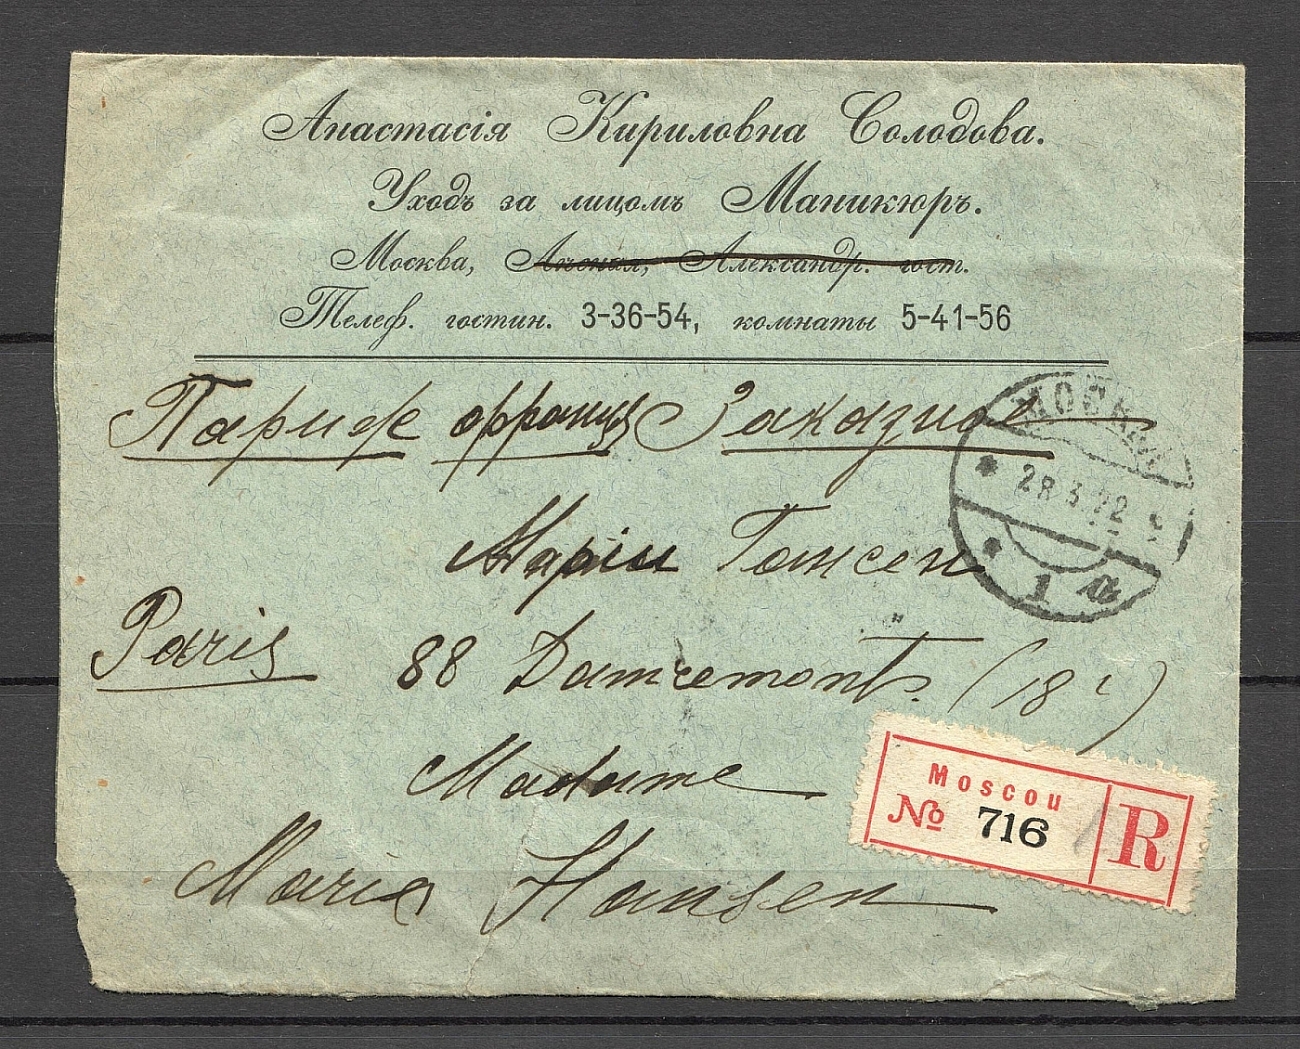 Анастасія Кириловна Солодова.
Уходъ за лицомъ Маникюръ.
Москва, Лѣсная, Александр. гост.
Телеф. гостин. 3-36-54, комнаты 5-41-56
Париж Заказное
МОСКВА
28 3 22
1 a
Маріи Гансен
Paris 88 Damremont (18
Madame
Maria Hansen
Moscou
№ 716 R